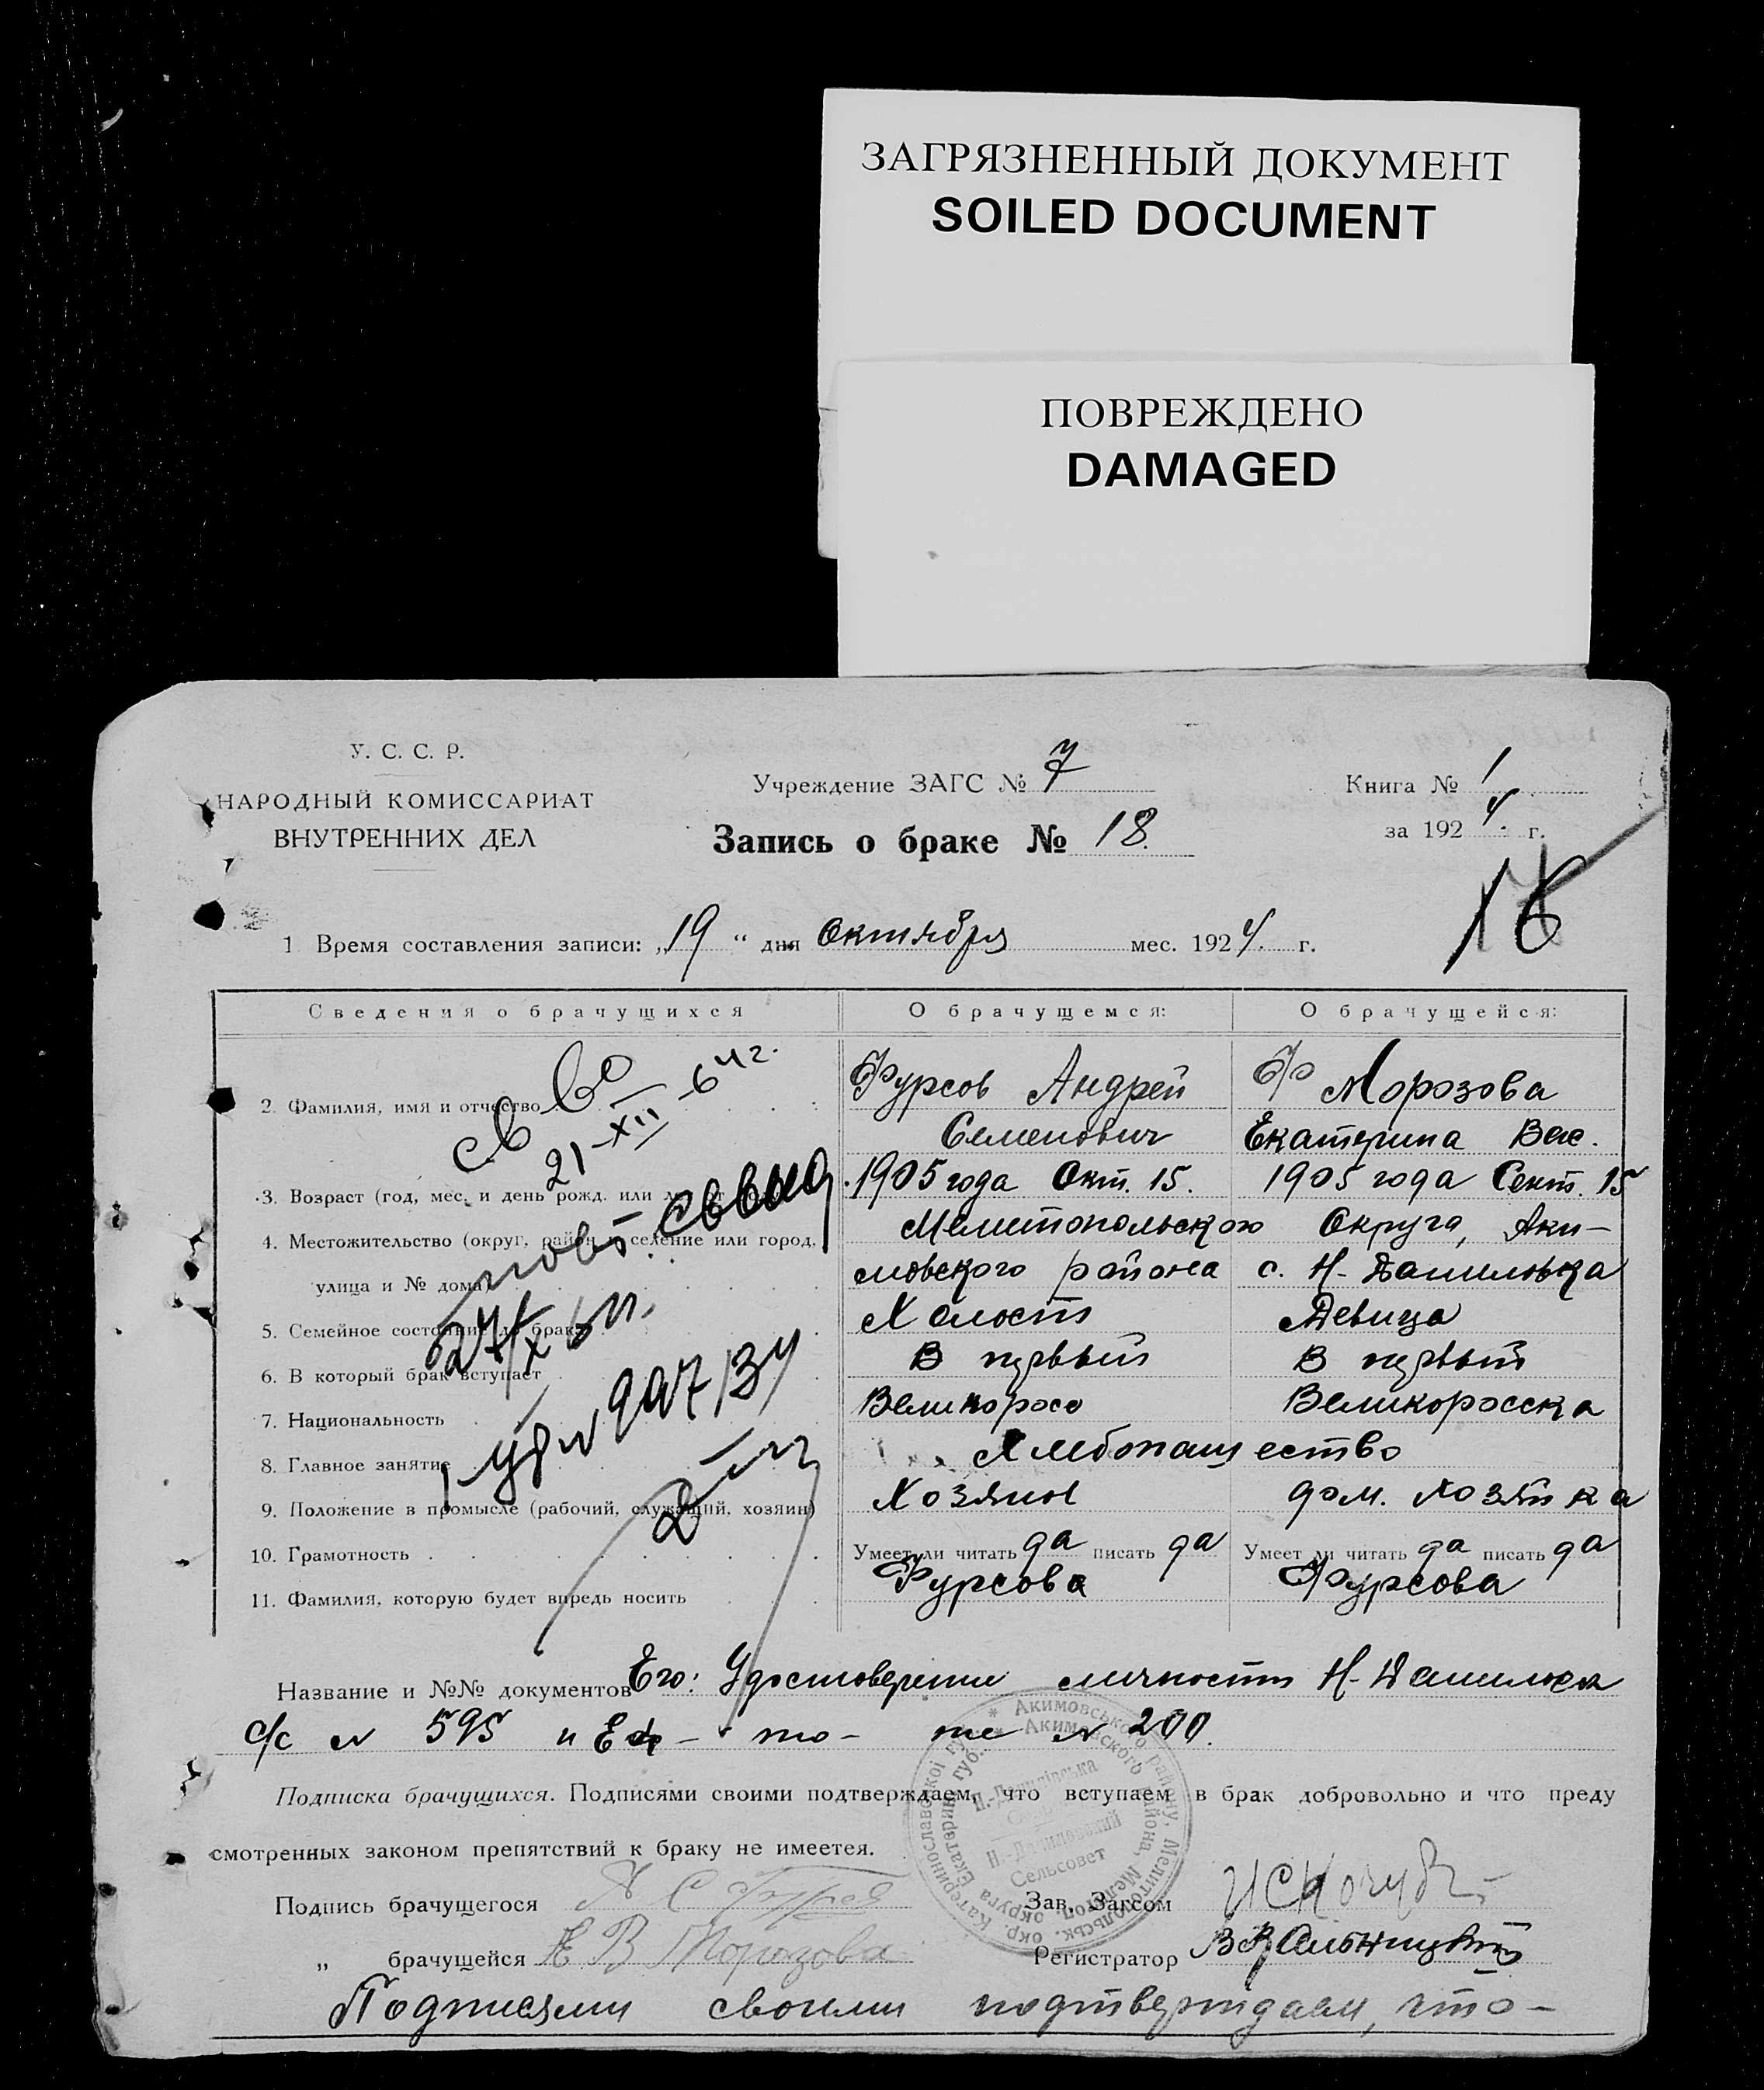 ЗАГРЯЗНЕННЫЙ ДОКУМЕНТ
SOILED DOCUMENT
ПОВРЕЖДЕНО
DAMAGED
У. С. С. Р.
НАРОДНЫЙ КОМИССАРИАТ
ВНУТРЕННИХ ДЕЛ
Учреждение ЗАГС № 7
Запись о браке № 18.
Книга № 1
за 1924. г.
18
1 Время составления записи: „19 “ дня Октября мес. 1924. г.
Сведения о брачущихся О брачущемся: О брачущейся:
2. Фамилия, имя и отчество Фурсов Андрей Морозова
Семенович Екатерина Вас.
3. Возраст (год, мес. и день рожд. или 1905 года Окт. 15. 1905 года Сент. 15
4. Местожительство (округ, район и селение или город, Мелитопольского Округа, Аки-
улица и № дома) мовского района с. Н-Даниловка
5. Семейное состояние до брака Холост Девица
6. В который брак вступает В первый В первый
7. Национальность Великоросс Великоросска
8. Главное занятие Хлебопашество
9. Положение в промысле (рабочий, служащий, хозяин) Хозяин дом. хозяйка
10. Грамотность Умеет ли читать да писать да Умеет ли читать да писать да
11. Фамилия, которую будет впредь носить Фурсова Фурсова
св во
21-XII-64 г.
Название и №№ документов Его: Удостоверение личности Н-Даниловск
с/с № 595 и Ея - то - же № 200.
Подписка брачущихся. Подписями своими подтверждаем, что вступаем в брак добровольно и что преду
смотренных законом препятствий к браку не имеетея.
Подпись брачущегося А С Фурсов
Зав. Загсом
„ брачущейся Е В Морозова
Регистратор
Н.-Даниловский
Сельсовет
Подписями своими подтверждаем, что-